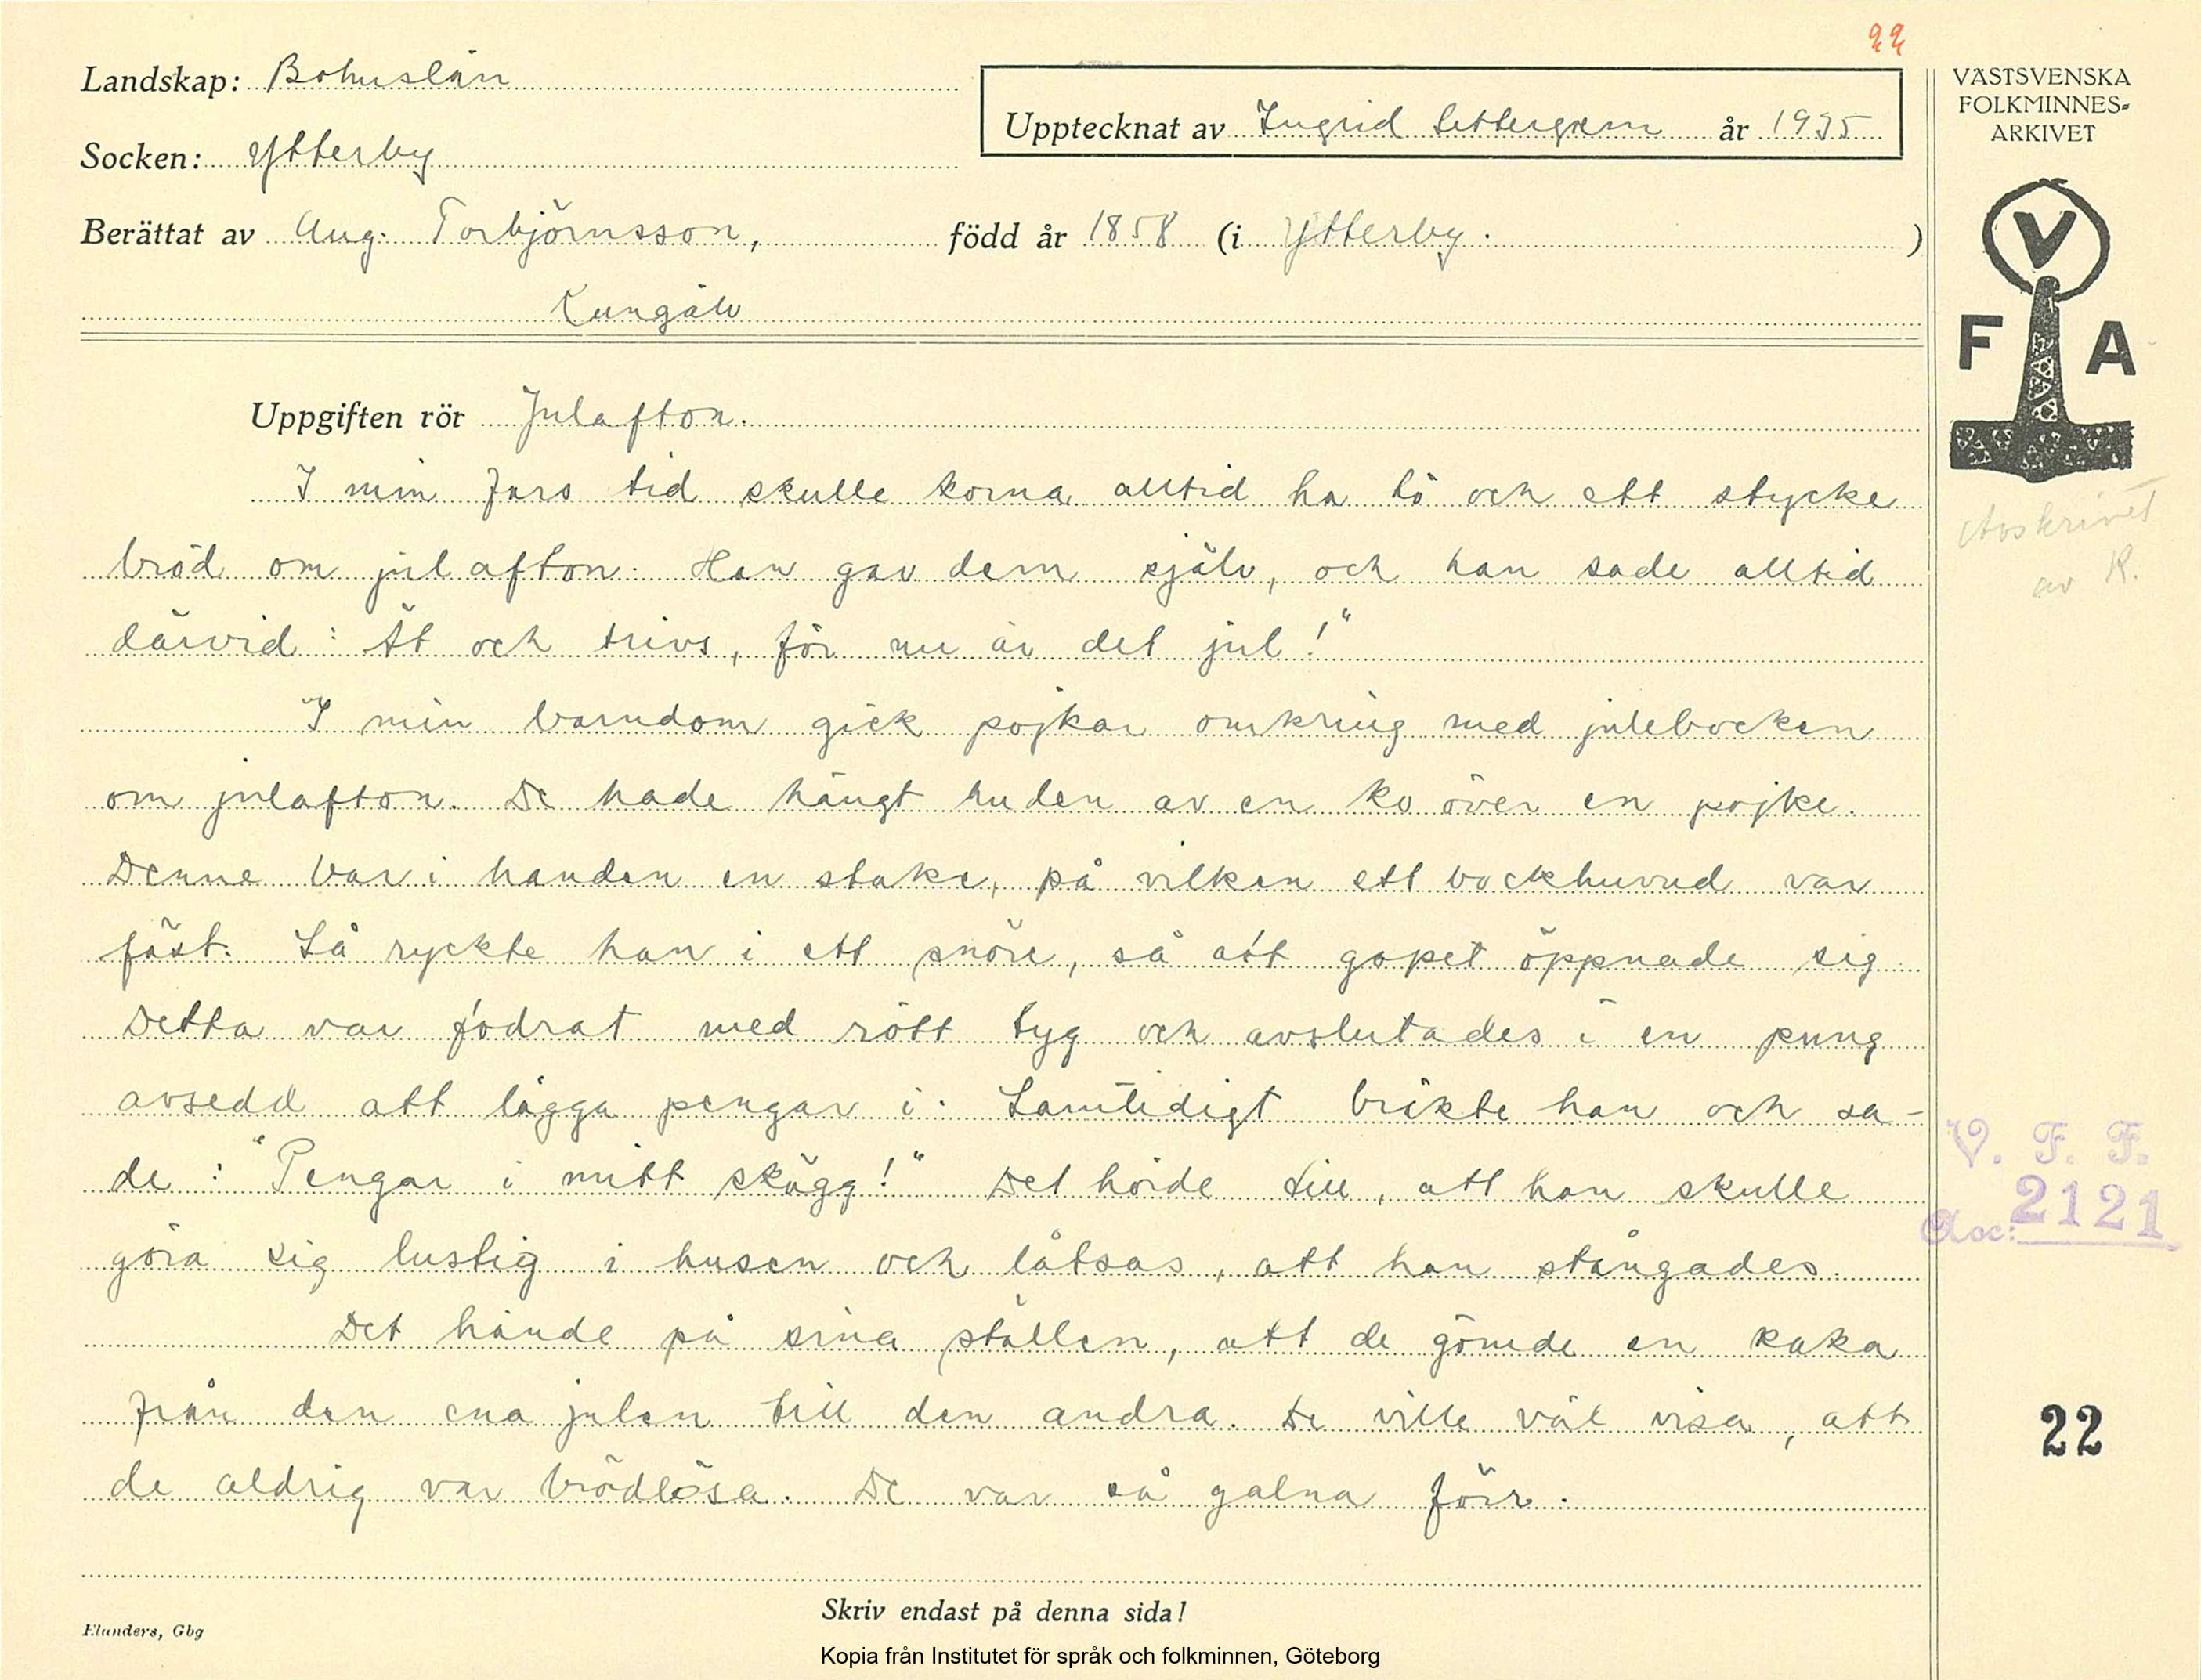 22
Landskap: Bohuslän
Upptecknat av Ingrid Settergren år 1935
Socken: Ytterby
Berättat av Aug. Torbjörnsson, född år 1858 (i Ytterby. )
Kungälv
Uppgiften rör Julafton.
I min fars tid skulle korna alltid ha hö och ett stycke
bröd om jul afton. Han gav dem själv, och han sade alltid
därvid: Ät och trivs, för nu är det jul!"
I min barndom gick pojkar omkring med julebocken
om julafton. De hade hängt huden av en ko över en pojke.
Denne bar i handen en stake, på vilken ett bockhuvud var
fäst. Så ryckte han i ett snöre, så att gapet öppnade sig
Detta var fodrat med rött tyg och avslutades i en pung
avsedd att lägga pengar i. Samtidigt bräkte han och sa-
de: "Pengar i mitt skägg!" Det hörde till, att han skulle
göra sig lustig i husen och låtsas, att han stångades.
Det hände på sina ställen, att de gömde en kaka
från den ena julen till den andra. De ville väl visa, att
de aldrig var brödlösa. De var så galna förr.
Skriv endast på denna sida!
Elanders, Gbg
Kopia från Institutet för språk och folkminnen, Göteborg
VÄSTSVENSKA
FOLKMINNES-
ARKIVET
V
F A
Avskrivet
av R.
V. F. F.
Acc: 2121
22